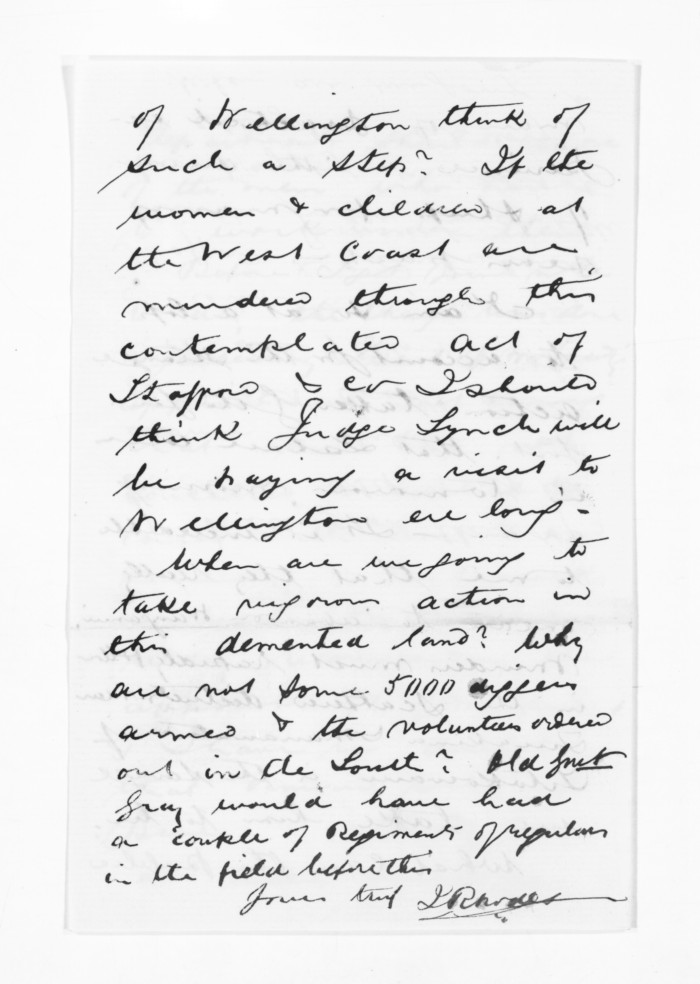 of Wellington think of
such a step? If the
women & children at
the West Coast are
murdered through this
contemplated act of
Stafford & Co I should
think Judge Lynch will
be paying a visit to
Wellington ere long -
When are we going to
take vigorous action in
this demented land? Why
are not some 5000 diggers
armed & the volunteers ordered
out in the South? Old
Gray would have had
a couple of Regiments of regulars
in the field before this
Yours truly J Rhodes